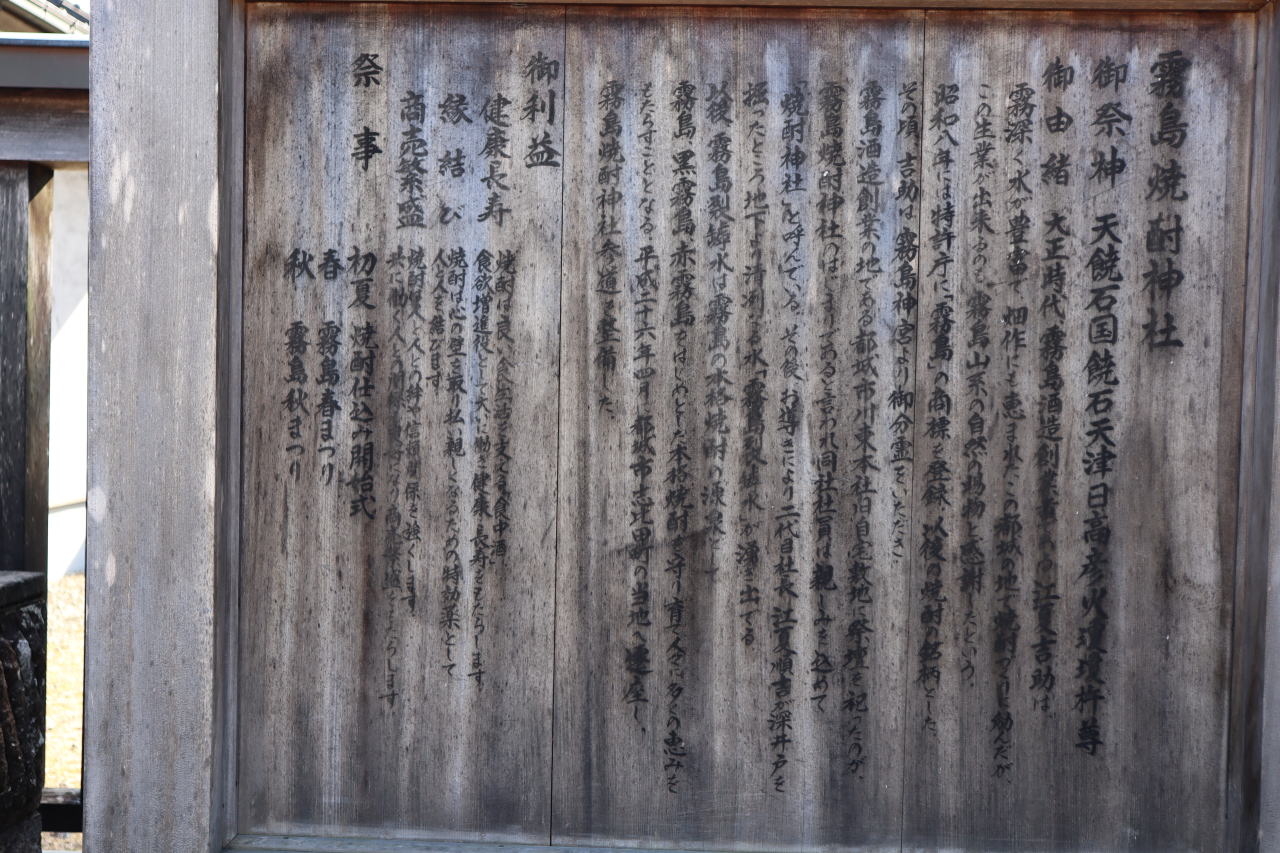 霧島焼酎神社
御祭神 天饒石国饒石天津日高彦火瓊瓊杵尊
御由緒 大正時代 霧島酒造創業者の 江夏吉助は
霧深く水が豊富で 畑作にも恵まれた この都城の地で焼酎づくりに励んだが、
この生業が出来るのも、霧島山系の自然の賜物と感謝したという。
昭和八年には特許庁に「霧島」の商標を登録、以後の焼酎の銘柄とした。
その頃 吉助は 霧島神宮より 御分霊をいただき
霧島酒造創業の地である都城市川東本社旧自宅敷地に祭壇を祀ったのが、
霧島焼酎神社のはじまりであると言われ同社社員は親しみを込めて
「焼酎神社」と呼んでいる。その後、お導きにより二代目社長 江夏順吉が深井戸を
掘ったところ地下より清冽なる水「霧島裂罅水」が湧き出てる
以後 霧島裂罅水は霧島の本格焼酎の源泉とし
霧島 黒霧島 赤霧島をはじめとした本格焼酎を守り育て人々に多くの恵みを
もたらすこととなる。平成二十六年四月 都城市志比田町の当地へ遷座し、
霧島焼酎神社参道を整備した。
御利益
健康長寿 焼酎は良い食生活を支える「食中酒」
食欲増進役として大いに働き健康・長寿をもたらします。
縁結び 焼酎は心の壁を取り払い親しくなるための特効薬として
人と人を結びます
商売繁盛 焼酎は人と人との絆や信頼関係を強くします
共に働く人との関係も良好になり商売繁盛をもたらします
祭事 初夏 焼酎仕込み開始式
春 霧島春まつり
秋 霧島秋まつり